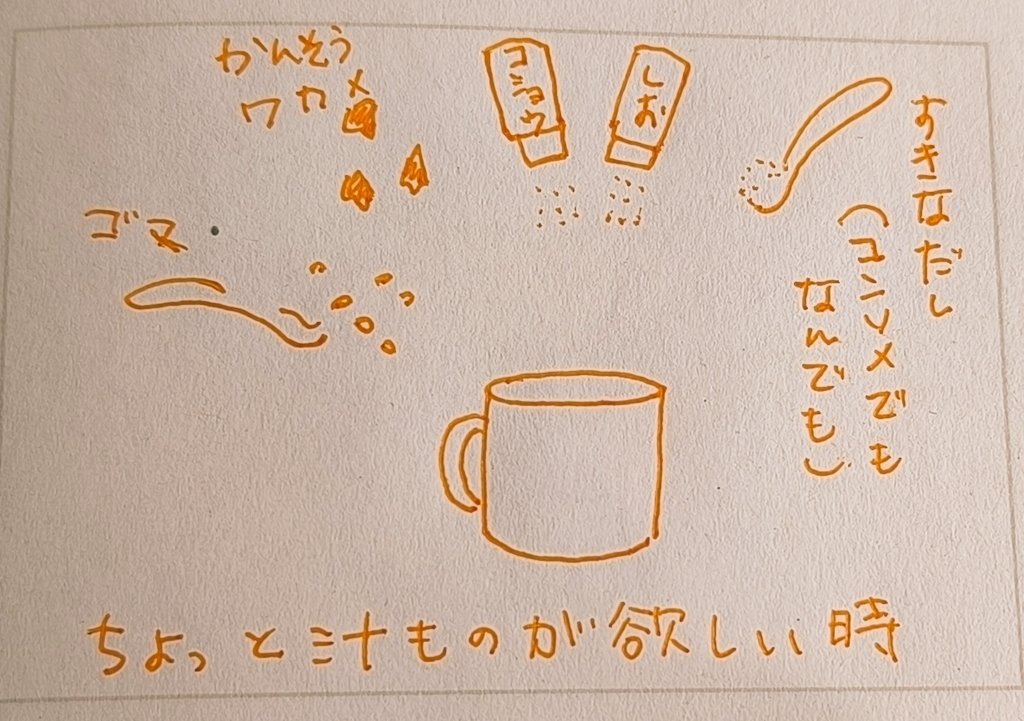 かんそう
ワカメ
コショウ
しお
すきなだし
(コンソメでも
なんでも)
ゴマ
ちょっと汁ものが欲しい時